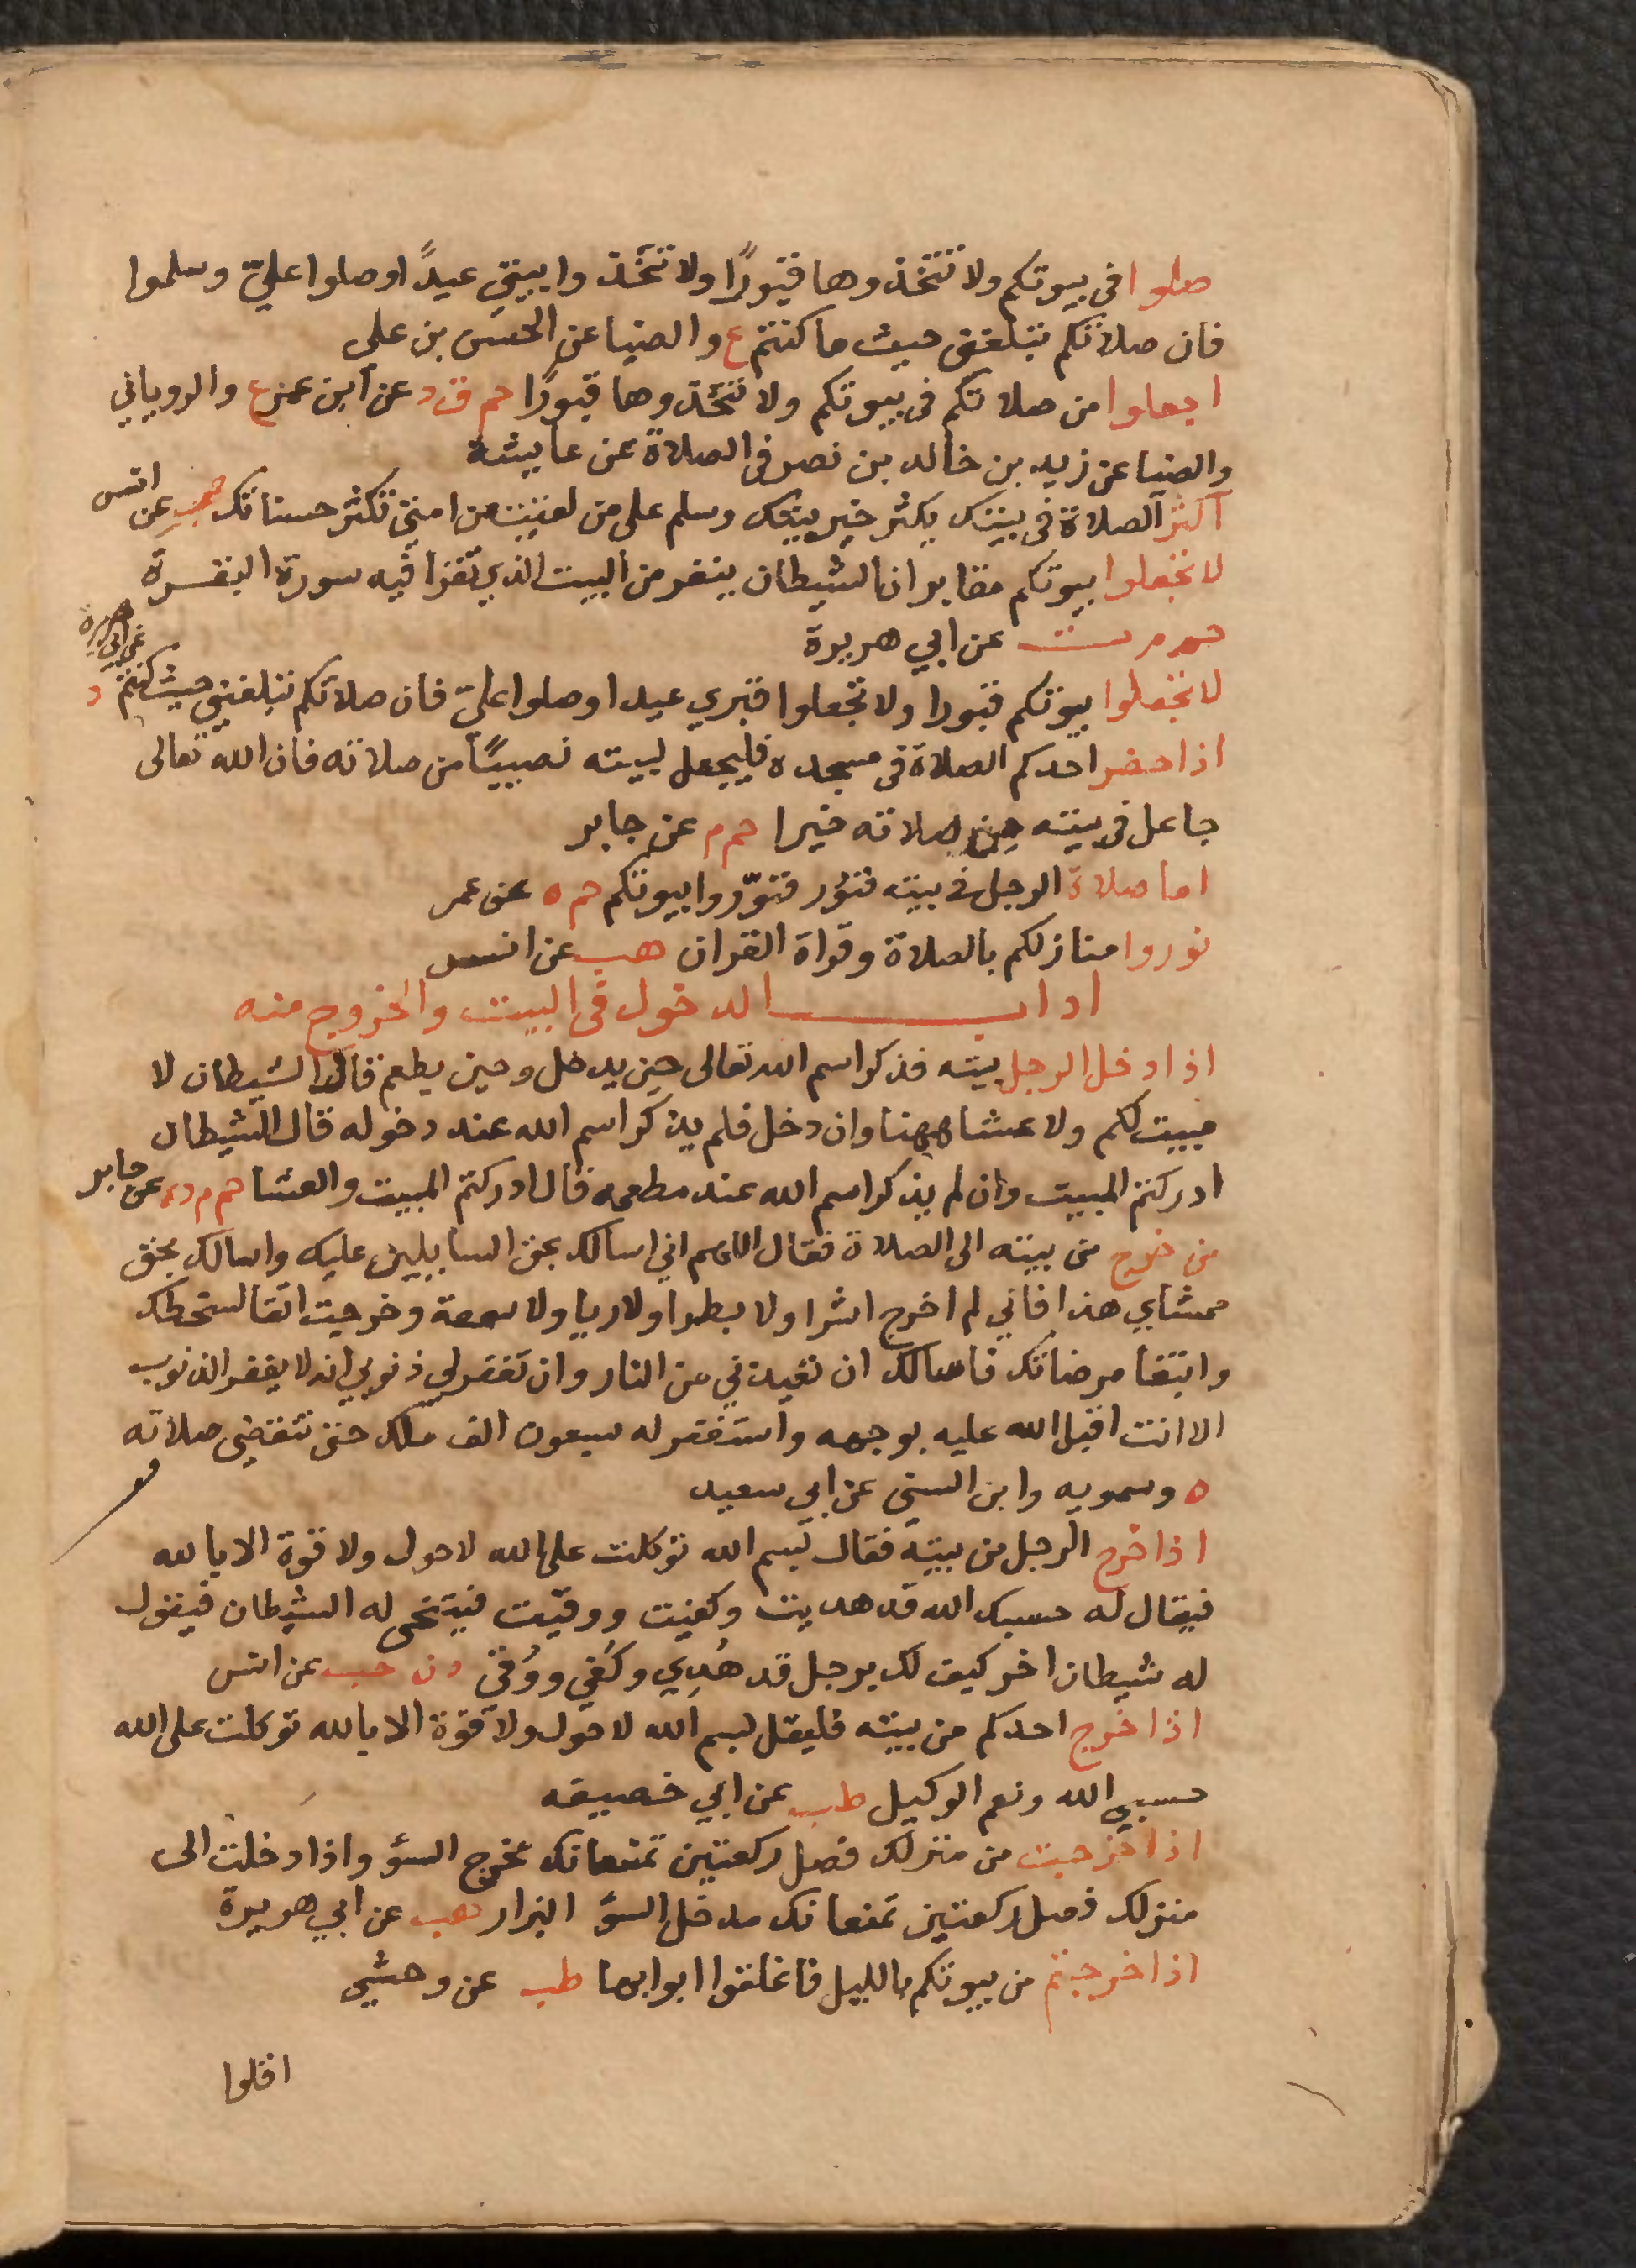 صلوا في بيوتكم ولا تتخذوها قبورًا ولا تتخذوا بيتي عيدًا وصلوا عليّ وسلموا
فان صلاتكم تبلغني حيث ما كنتم ع والضيا عن الحسن بن علي
اجعلوا من صلاتكم في بيوتكم ولا تتخذوها قبورًا حم ق د عن ابن عمر ع والروياني
والضيا عن زيد بن خالد بن نصر في الصلاة عن عايشة
اكثر الصلاة في بيتك يكثر خير بيتك وسلم على من لقيت من امتي تكثر حسناتك هب عن انس
لا تجعلوا بيوتكم مقابر ان الشيطان ينفر من البيت الذي تقرا فيه سورة البقرة
حم م ت عن ابي هريرة
لا تجعلوا بيوتكم قبورا ولا تجعلوا قبري عيدا وصلوا عليّ فان صلاتكم تبلغني حيث كنتم د عن ابي هريرة
اذا حضر احدكم الصلاة في مسجده فليجعل لبيته نصيبًا من صلاته فان الله تعالى
جاعل في بيته من صلاته خيرا حم م عن جابر
اما صلاة الرجل في بيته فنوُر فنوّروا بيوتكم حم ه عن عمر
نوروا منازلكم بالصلاة وقراة القران هب عن انس
اداب الدخول في البيت والخروج منه
اذا دخل الرجل بيته فذكر اسم الله تعالى حين يدخل وحين يطعم قال الشيطان لا
مبيت لكم ولا عشا ههنا وان دخل فلم يذكر اسم الله عند دخوله قال الشيطان
ادركتم المبيت وان لم يذكر اسم الله عند مطعمه قال ادركتم المبيت والعشا حم م د ه عن جابر
من خرج من بيته الى الصلاة فقال اللهم اني اسالك بحق السايلين عليك واسالك بحق
ممشاي هذا فاني لم اخرج اشرا ولا بطرا ولا ريا ولا سمعة وخرجت اتقا سخطك
وابتغا مرضاتك فاسالك ان تعيدني من النار وان تغفر لي ذنوبي انه لا يغفر الذنوب
الا انت اقبل الله عليه بوجهه واستغفر له سبعون الف ملك حتى تنقضي صلاته
ه وسمويه وابن السني عن ابي سعيد
اذا خرج الرجل من بيته فقال بسم الله توكلت على الله لا حول ولا قوة الا بالله
فيقال له حسبك الله قد هديت وكفيت ووقيت فيتنحى له الشيطان فيقول
له شيطان اخر كيف لك برجل قد هُدِي وكُفي ووُقي د ن حب عن انس
اذا خرج احدكم من بيته فليقل بسم الله لا حول ولا قوة الا بالله توكلت على الله
حسبي الله ونعم الوكيل طب عن ابي خصيفه
اذا خرجت من منزلك فصل ركعتين تمنعانك مخرج السؤ واذا دخلت الى
منزلك فصل ركعتين تمنعانك مدخل السؤ البزار هب عن ابي هريرة
اذا خرجتم من بيوتكم بالليل فاغلقوا ابوابها طب عن وحشي
اقلوا